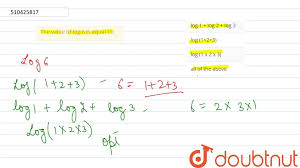 510425817
The value of log 6 is equal to
log 1 + log 2 + log 3
log (1+2+3)
log (1 x 2 x 3)
all of the above
Log 6
Log (1+2+3) - 6 = 1+2+3
log 1 + log 2 + log 3 - 6 = 2 x 3 x 1
Log (1x2x3)
opt
doubtnut